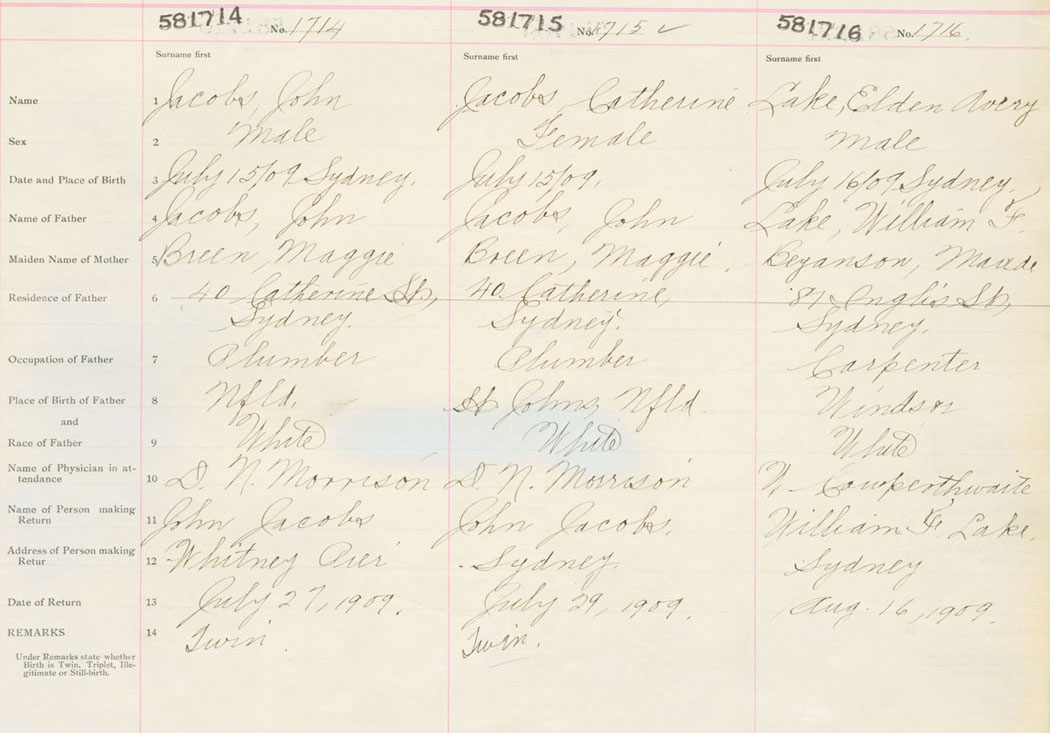 581714 No. 1714 581715 No. 1715 581716 No. 1716.
Surname first Surname first Surname first
Name 1 Jacobs, John Jacobs, Catherine Lake, Elden Avery
Sex 2 Male Female Male
Date and Place of Birth 3 July 15/09 Sydney. July 15/09. July 16/09 Sydney.
Name of Father 4 Jacobs, John Jacobs, John Lake, William F.
Maiden Name of Mother 5 Breen, Maggie Breen, Maggie. Beyanson, Maude
Residence of Father 6 40 Catherine St., 40 Catherine, 87 Inglis St,
Sydney. Sydney. Sydney.
Occupation of Father 7 Plumber Plumber Carpenter
Place of Birth of Father 8 Nfld. St Johns, Nfld. Windsor
and
Race of Father 9 White White White
Name of Physician in at-
tendance 10 D. N. Morrison D. N. Morrison Cowperthwaite
Name of Person making
Return 11 John Jacobs John Jacobs. William F. Lake.
Address of Person making
Retur 12 Whitney Pier Sydney Sydney
Date of Return 13 July 27, 1909. July 29, 1909. Aug. 16, 1909.
REMARKS 14 Twin. Twin.
Under Remarks state whether
Birth is Twin, Triplet, Ille-
gitimate or Still-birth.